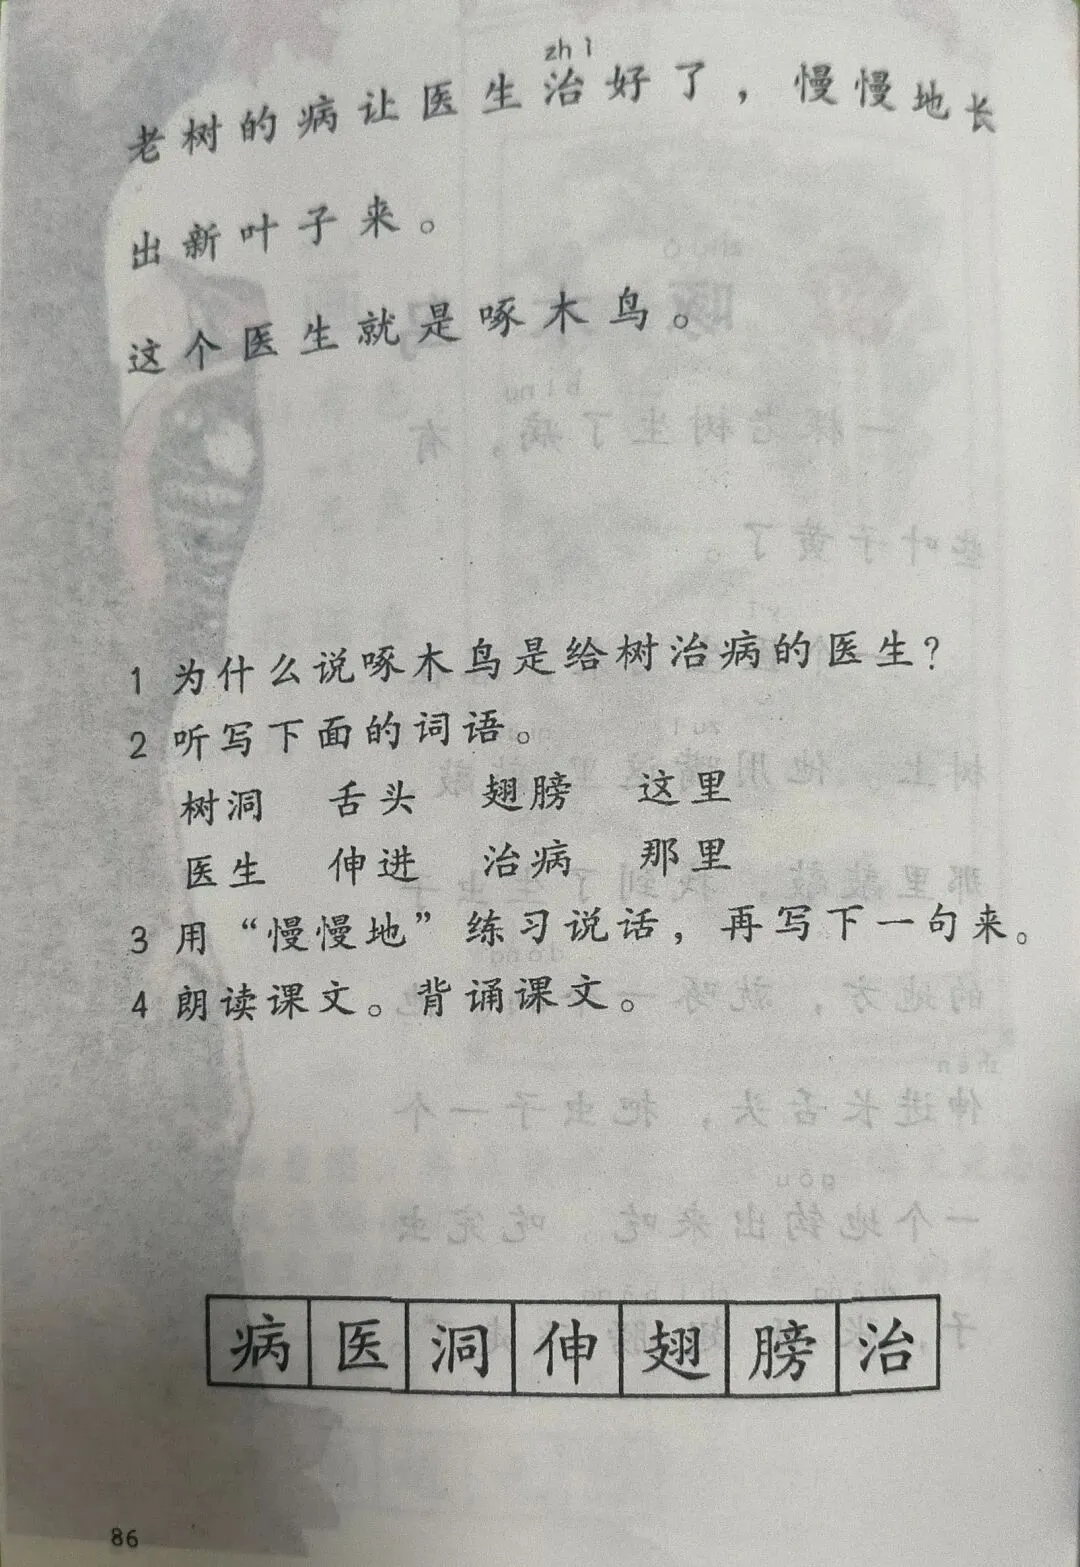 zhì
老树的病让医生治好了，慢慢地长
出新叶子来。
这个医生就是啄木鸟。
1 为什么说啄木鸟是给树治病的医生？
2 听写下面的词语。
树洞 舌头 翅膀 这里
医生 伸进 治病 那里
3 用“慢慢地”练习说话，再写下一句来。
4 朗读课文。背诵课文。
病 医 洞 伸 翅 膀 治
86